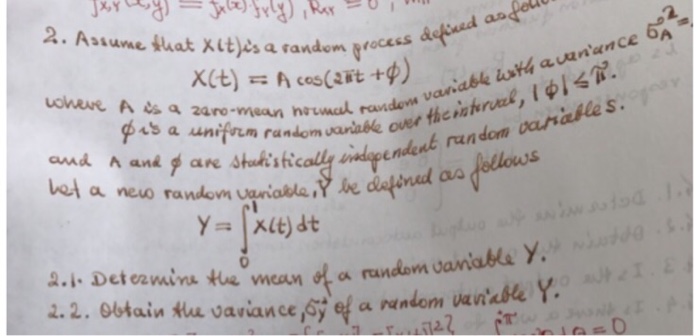 fx,y(x,y) = fx(x).fy(y), Rxy = 0
2. Assume that X(t) is a random process defined as follo
X(t) = A cos(2πt + φ)
where A is a zero-mean normal random variable with a variance σ_A² =
φ is a uniform random variable over the interval, |φ| ≤ π.
and A and φ are statistically independent random variables.
Let a new random variable, Y be defined as follows
Y = ∫₀¹ X(t) dt
2.1. Determine the mean of a random variable Y.
2.2. Obtain the variance, σ_y² of a random variable Y.